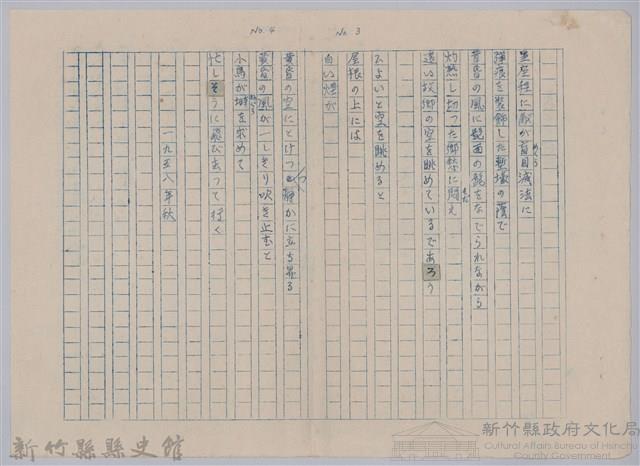 No. 3
星座程に敵が盲目滅法に
弾痕を装飾した塹壕の蔭で
黄昏の風に髭面の髭をなでられながら
灼熱し切った郷愁に悶え
遠い故郷の空を眺めているであろう
ひょいと空を眺めると
屋根の上には
白い煙が
No. 4
黄昏の空にとけつゝ静かに立ち昇る
黄昏の風が一しきり吹き止むと
小鳥が塒を求めて
忙しそうに飛び去って行く
一九五八年秋
新竹縣縣史館
新竹縣政府文化局
Cultural Affairs Bureau of Hsinchu
County Government